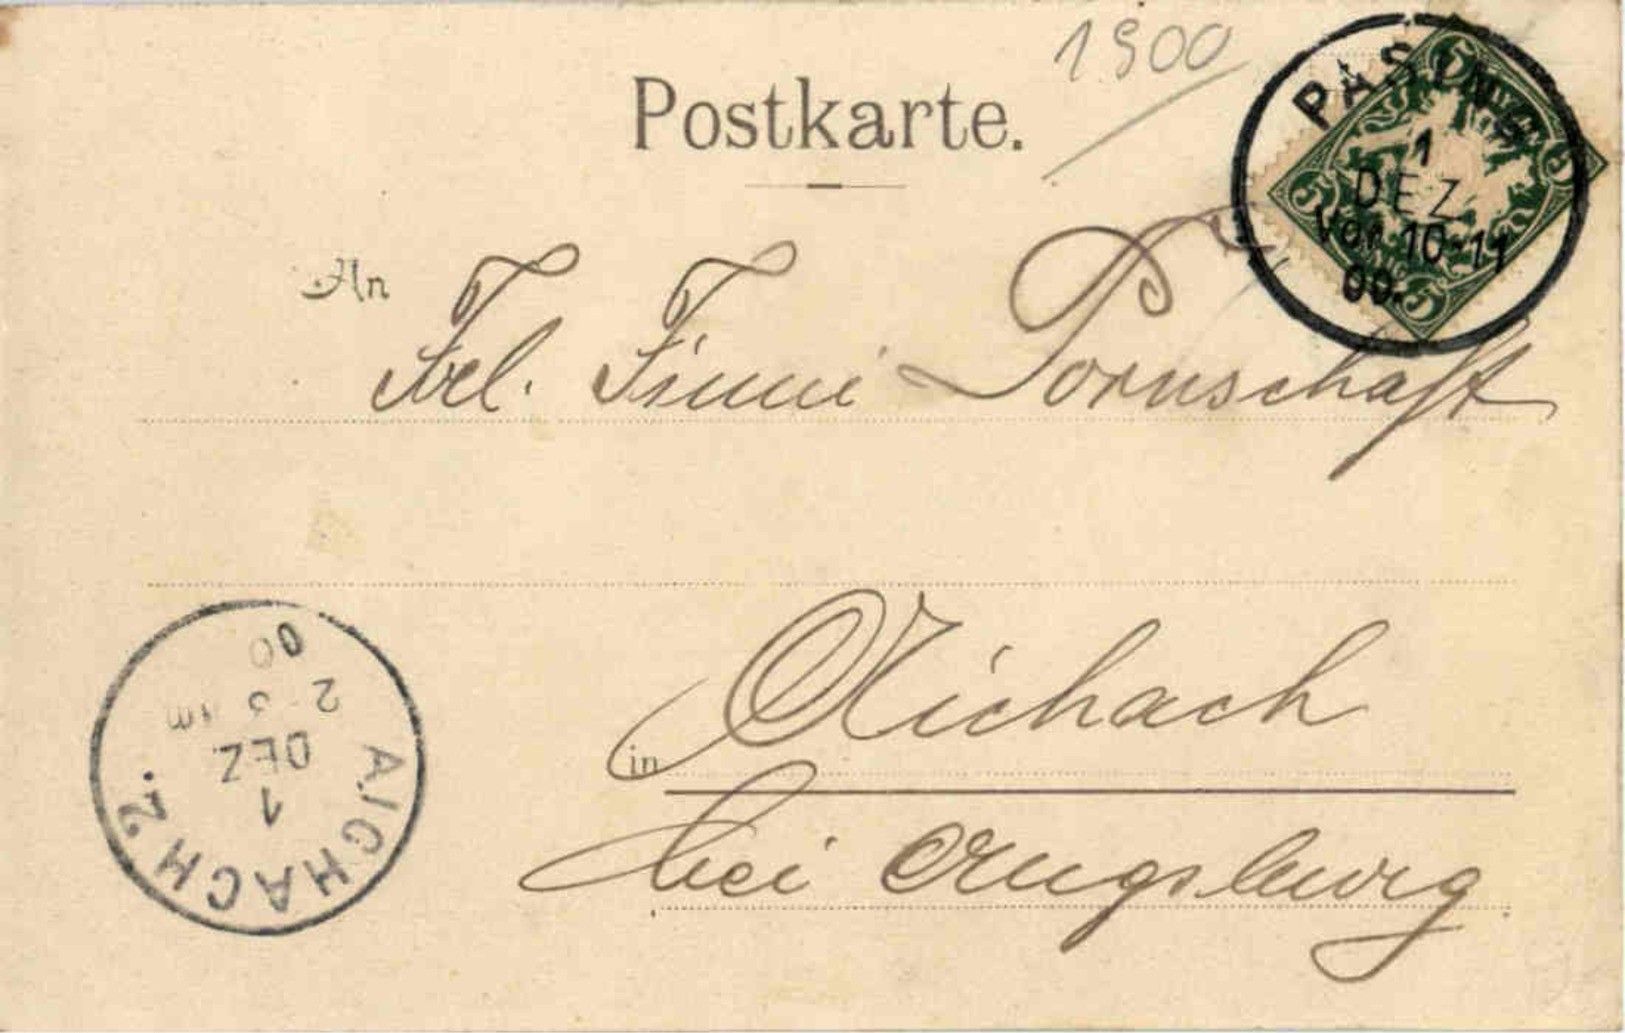 1900
Postkarte.
PASING
1
DEZ.
Vor. 10-11
00.
5
5
5
5
An
Frl. Finni Pornschaft
in Aichach
bei Augsburg
AICHACH 2.
1
DEZ.
2-3
00